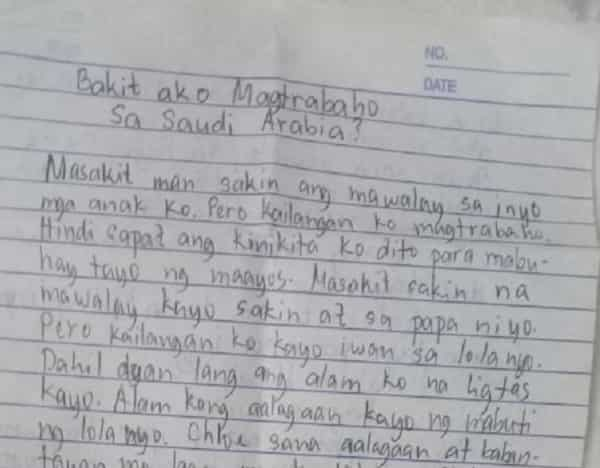 NO.
DATE
Bakit ako Magtrabaho
Sa Saudi Arabia?
Masakit man sakin ang mawalay sa inyo
mga anak ko. Pero kailangan ko magtrabaho.
Hindi sapat ang kinikita ko dito para mabu-
hay tayo ng maayos. Masakit sakin na
mawalay kayo sakin at sa papa niyo.
Pero kailangan ko kayo iwan sa lola nyo.
Dahil dyan lang ang alam ko na ligtas
kayo. Alam kong aalagaan kayo ng mabuti
ng lola nyo. Chloe sana aalagaan at baban-
tayan mo